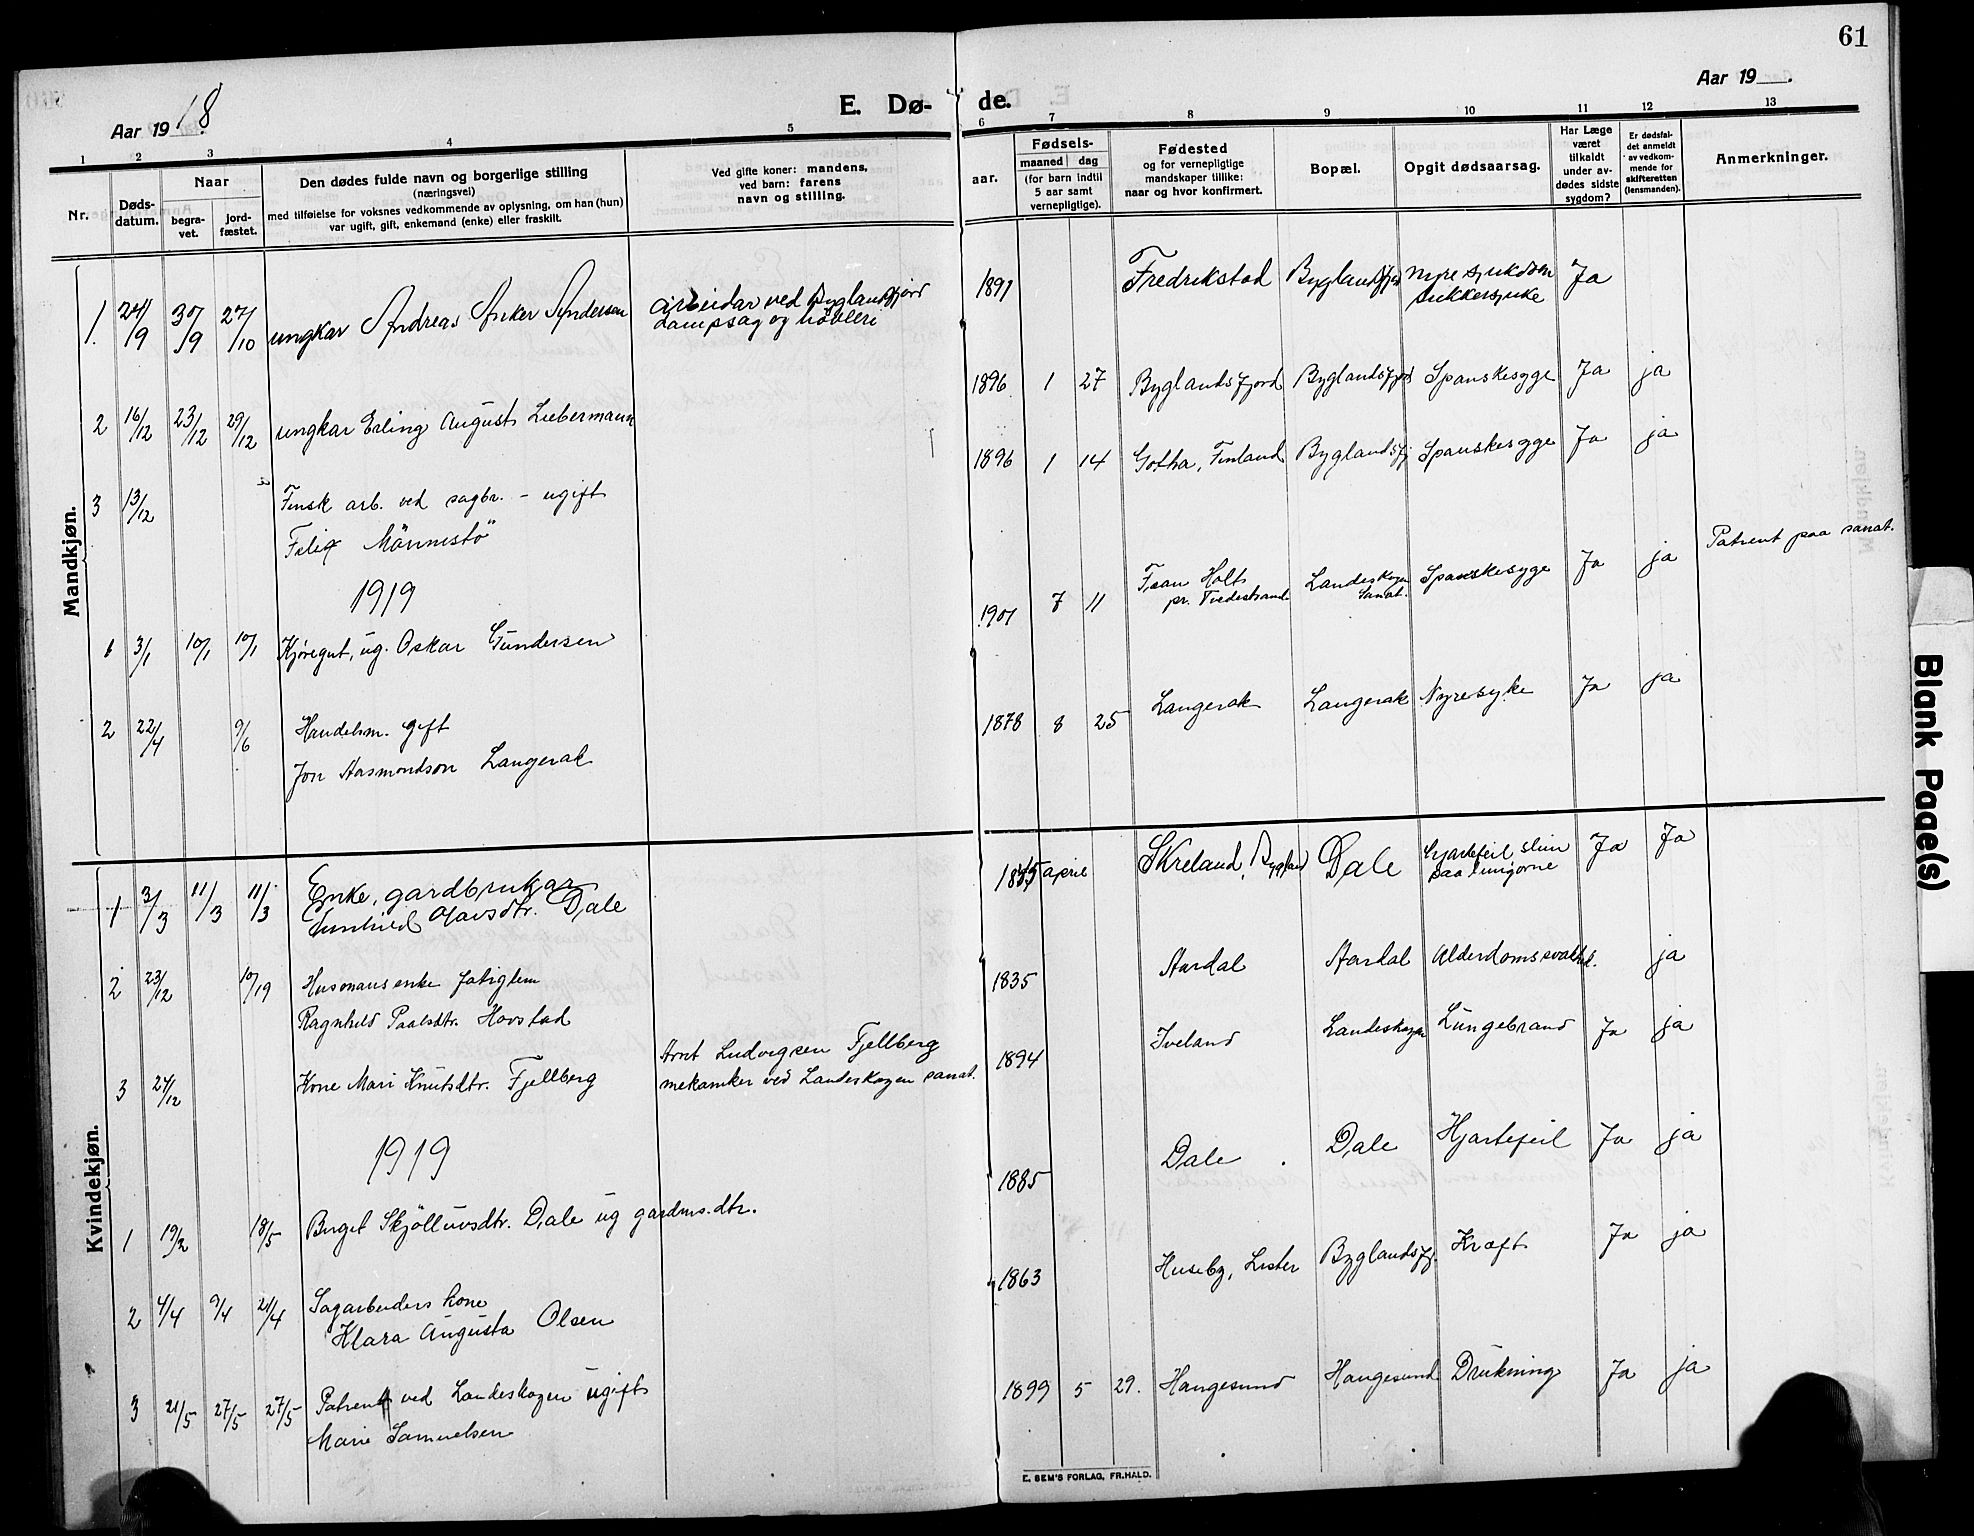 61
Aar 1918.
E. Dø-
de.
Aar 19 .
1 2 3 4 5
6 7 8 9 10 11 12 13
Nr.
Døds-
datum.
Naar
begra-
vet.
jord-
fæstet.
Den dødes fulde navn og borgerlige stilling
(næringsvei)
med tilføielse for voksnes vedkommende av oplysning, om han (hun)
var ugift, gift, enkemand (enke) eller fraskilt.
Ved gifte koner: mandens,
ved barn: farens
navn og stilling.
Fødsels-
aar.
maaned dag
(for barn indtil
5 aar samt
vernepligtige).
Fødested
og for vernepligtige
mandskaper tillike:
naar og hvor konfirmert.
Bopæl.
Opgit dødsaarsag.
Har Læge
været
tilkaldt
under av-
dødes sidste
sygdom?
Er dødsfal-
det anmeldt
av vedkom-
mende for
skifteretten
(lensmanden).
Anmerkninger.
Mandkjøn.
1 24/9 30/9 27/10 ungkar Andreas Anker Andersen
arbeidar ved Byglandsfjord
dampsag og høvleri
1891 Fredrikstad Byglandsfjord nyre sjukdom Ja
sukkersjuke
2 16/12 23/12 29/12 ungkar Erling August Liebermann
1896 1 27 Byglandsfjord Byglandsfjord Spanskesyge Ja ja
3 13/12 Finsk arb. ved sagbr. - ugift
Felix Männistö
1896 1 14 Gotha, Finland Byglandsfj Spanskesyge Ja ja
1919
1 3/1 10/1 10/1 Kjøregut, ug. Oskar Gundersen
1901 7 11 Fran Holt Landeskogen Spanskesyge Ja ja Patient paa sanat.
pr. Tvedestrand Sanat.
2 22/4 9/6 Handelsm. gift
Jon Aasmundson Langerak
1878 8 25 Langerak Langerak Nyresyke Ja ja
Kvindekjøn.
1 3/3 11/3 11/3 Enke, gardbrukar
Gunhild Olavsdtr. Dale
april Skreland, Bygland Dale hjartefeil slim Ja Ja
paa lungorne
2 23/12 10/19 Husmans enke fatiglem
Ragnhild Paalsdtr. Hovstad
1835 Aardal Aardal Alderdomssvakhed. ja
3 24/12 Kone Mari Knutsdtr. Fjellberg
Arnt Ludvigsen Fjellberg
mekaniker ved Landeskogen sanat.
1894 Iveland Landeskogen Lungebrand Ja ja
1919
1 19/2 18/5 Birget Skjölluvsdtr. Dale ug gardms.dtr.
1885 Dale Dale Hjartefeil Ja ja
2 4/4 9/4 21/4 Sagarbeiders kone
Klara Augusta Olsen
1863 Huseby, Lister Byglandsfj. Kræft Ja ja
3 21/5 27/5 27/5 Patient ved Landeskogen ugift
Marie Samuelsen
1899 5 29. Haugesund Haugesund Drukning Ja ja
E. SEM'S FORLAG, FR.HALD.
Blank Page(s)